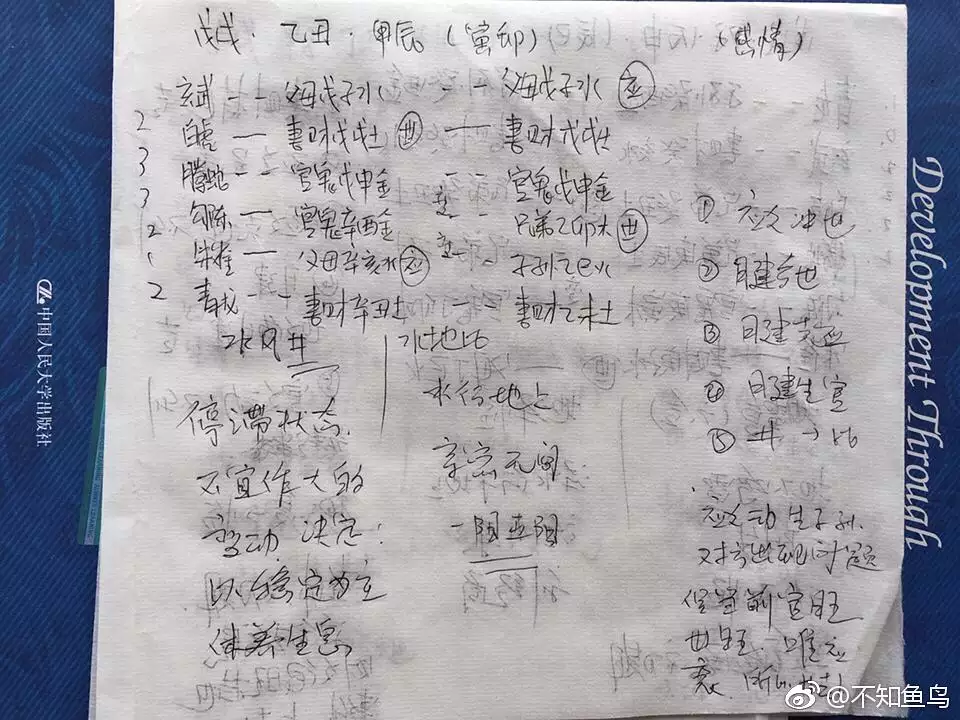 戊戌·乙丑·甲辰(寅卯) (感情)
玄武 -- 父母戊子水 -- 父母戊子水 应
2 白虎 — 妻财戊戌土 世 — 妻财戊戌土
3 腾蛇 -- 官鬼戊申金 -- 官鬼戊申金
3 勾陈 — 官鬼辛酉金 -- 兄弟乙卯木 世
2 朱雀 — 父母辛亥水 应 -- 子孙乙巳火
2 青龙 -- 妻财辛丑土 妻财乙未土
水风井
水地比
停滞状态
不宜作大的
变动 决定:
以稳定为主
休养生息
水行地上
亲密无间
① 应爻冲世
② 日建合世
③ 日建
④ 日建生官
⑤ 井→比
应爻动生子孙
对方出现问题
官旺
世旺 唯应
衰
中国人民大学出版社
Development Through
@不知鱼鸟